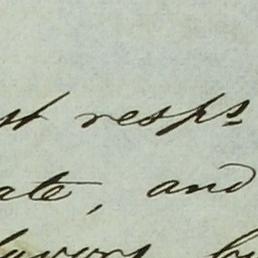 st resps
ate, and
favors by